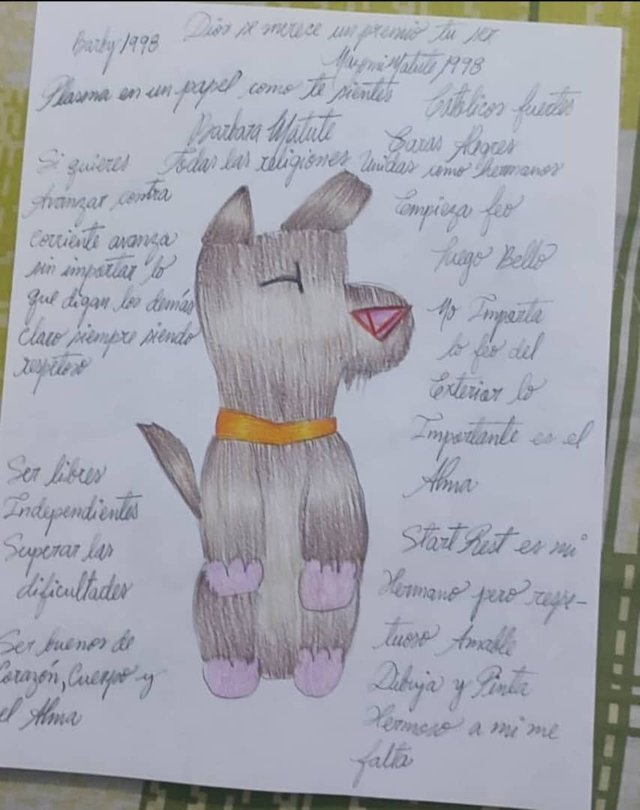 Dios se merece un premio tu ser
Barby 1998
Maymi Matute 1998
Plasma en un papel como te sientes
Católicos fuertes
Barbara Matute
Caras Alegres
Si quieres
Avanzar contra
corriente avanza
sin importar lo
que digan los demás
claro siempre siendo
respetoso
Todas las religiones Unidas como hermanos
Empieza feo
luego Bello
No Importa
lo feo del
Exterior lo
Importante es el
Alma
Ser libres
Independientes
Superar las
dificultades
Ser buenos de
Corazón, Cuerpo y
el Alma
Start Rest es mi
Hermano pero respe-
tuoso Amable
Dibuja y Pinta
Hermoso a mi me
falta